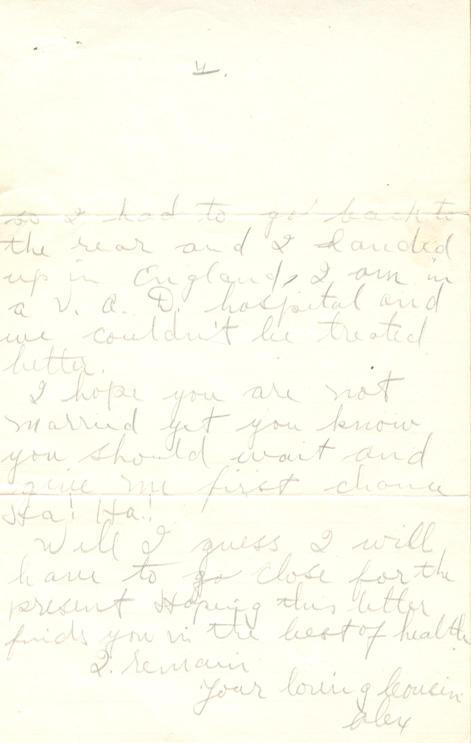 4.
so I had to go back to
the rear and I landed
up in England, I am in
a V. A. D. hospital and
we couldn't be treated
better.
I hope you are not
married yet you know
you should wait and
give me first chance
Ha! Ha!
Well I guess I will
have to go close for the
present Hoping this letter
finds you in the best of health
I. remain
Your loving Cousin
Alex